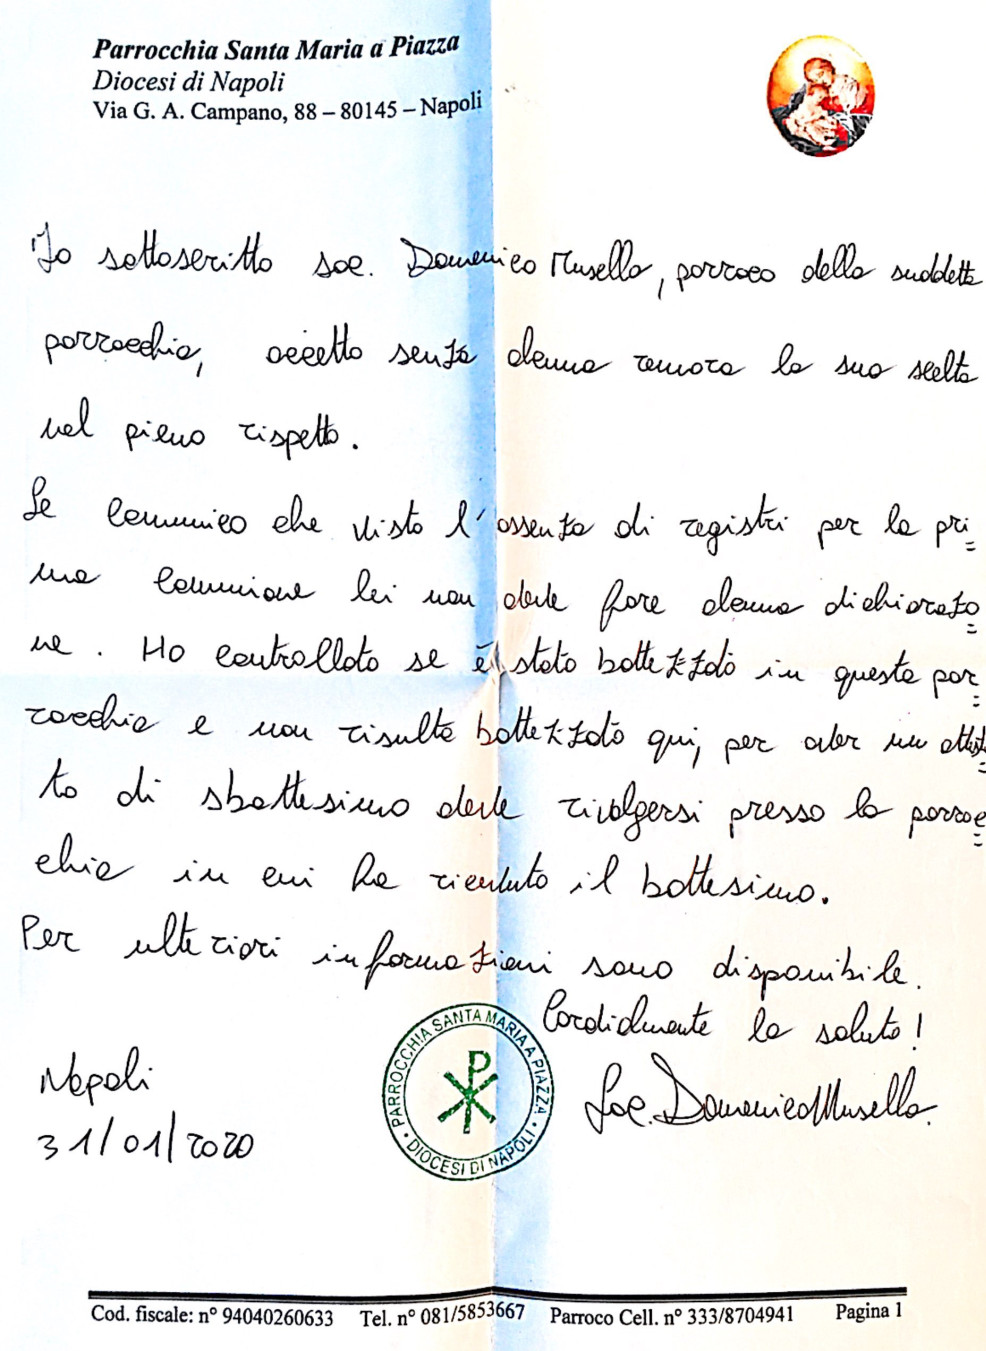 Parrocchia Santa Maria a Piazza
Diocesi di Napoli
Via G. A. Campano, 88 – 80145 – Napoli
Io sottoscritto sac. Domenico Musella, parroco della suddetta
parrocchia, accetto senza alcuna remora la sua scelta
nel pieno rispetto.
Le comunico che visto l'assenza di registri per la pri=
ma comunione lei non deve fare alcuna dichiarazio=
ne. Ho controllato se è stato battezzato in questa par=
rocchia e non risulta battezzato qui, per aver un attesta=
to di sbattesimo deve rivolgersi presso la parroc=
chia in cui ha ricevuto il battesimo.
Per ulteriori informazioni sono disponibile.
Cordialmente la saluto!
Napoli
31/01/2020
Sac. Domenico Musella.
PARROCCHIA SANTA MARIA A PIAZZA
• DIOCESI DI NAPOLI •
Cod. fiscale: n° 94040260633 Tel. n° 081/5853667 Parroco Cell. n° 333/8704941 Pagina 1